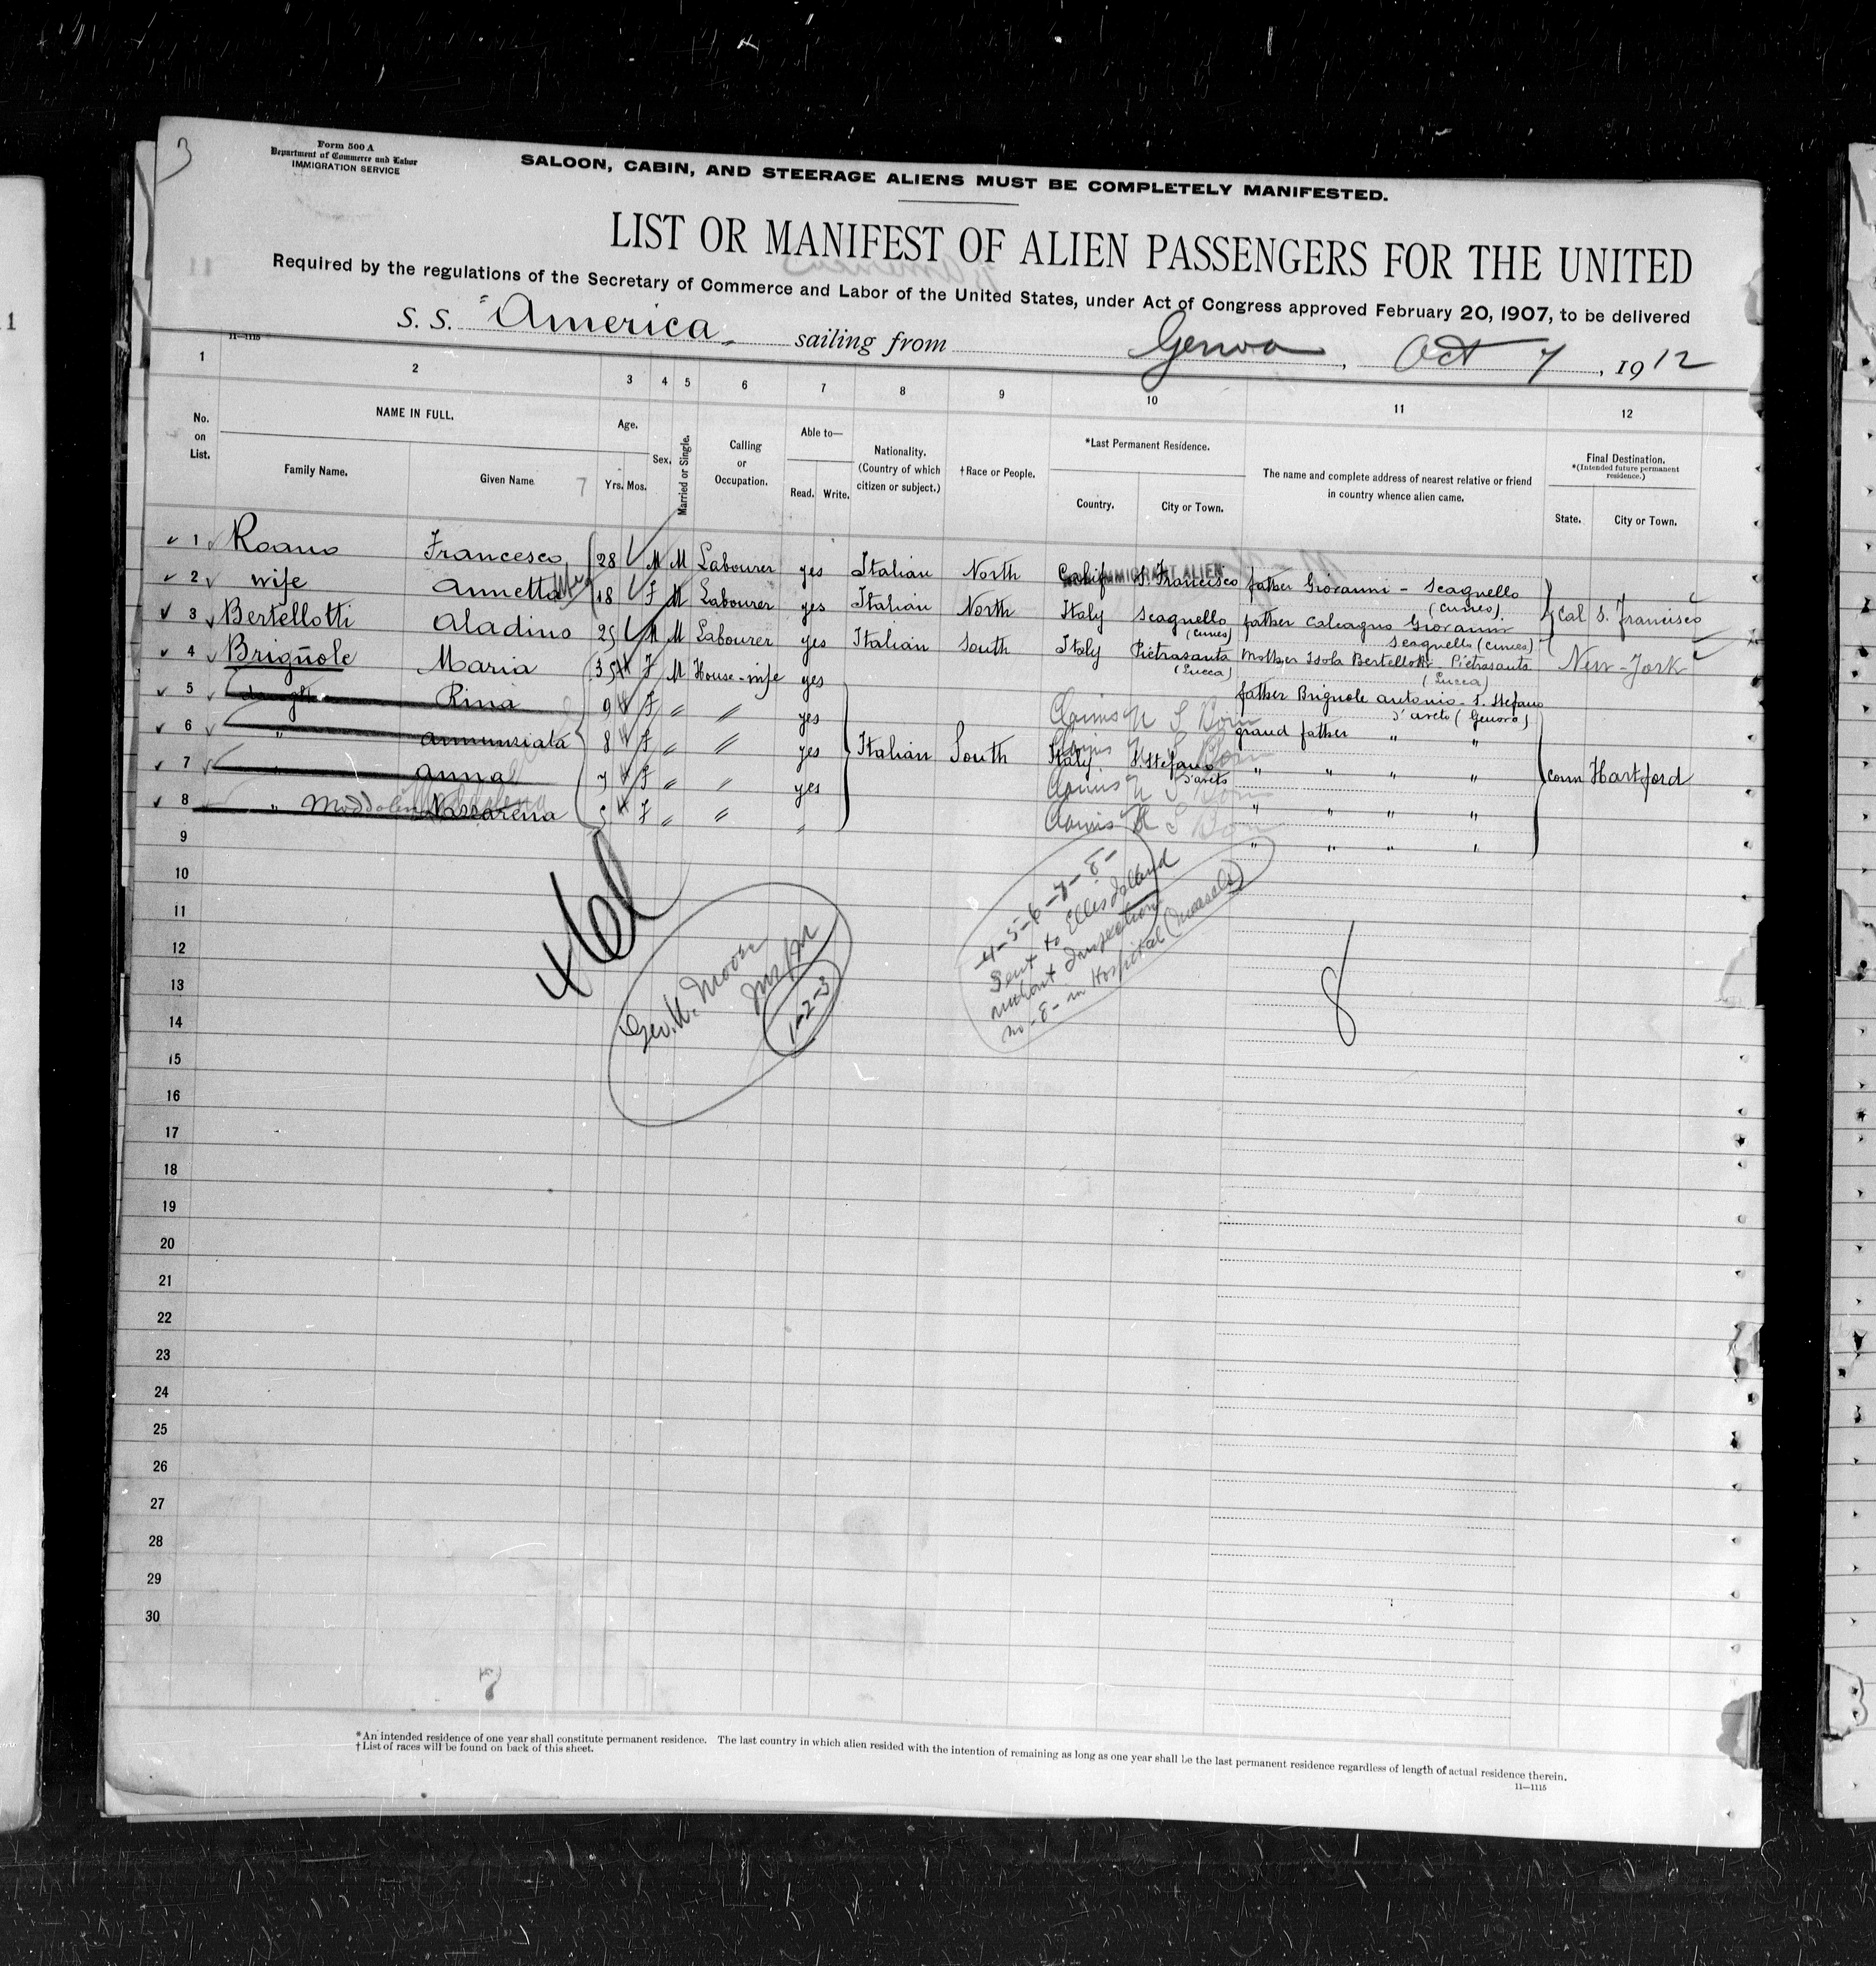 3
Form 500 A
Department of Commerce and Labor
IMMIGRATION SERVICE
SALOON, CABIN, AND STEERAGE ALIENS MUST BE COMPLETELY MANIFESTED.
LIST OR MANIFEST OF ALIEN PASSENGERS FOR THE UNITED
Required by the regulations of the Secretary of Commerce and Labor of the United States, under Act of Congress approved February 20, 1907, to be delivered
S. S. "America" sailing from Genoa, Oct 7, 1912
11—1115
1 2 3 4 5 6 7 8 9 10 11 12
No. on List.
NAME IN FULL.
Family Name. Given Name
7
Age.
Yrs. Mos.
Sex.
Married or Single.
Calling or Occupation.
Able to—
Read. Write.
Nationality. (Country of which citizen or subject.)
†Race or People.
*Last Permanent Residence.
Country. City or Town.
The name and complete address of nearest relative or friend in country whence alien came.
Final Destination.
*(Intended future permanent residence.)
State. City or Town.
1 Roano Francesco 28 M M Labourer yes Italian North Calif S. Francisco father Giovanni - Scagnello (Cuneo)
IMMIGRANT ALIEN
2 wife Annetta 18 F M Labourer yes Italian North Italy Scagnello (Cuneo) father Calcagno Giovanni Scagnello (Cuneo) Cal S. Francisco
3 Bertellotti Aladino 25 M M Labourer yes Italian South Italy Pietrasanta (Lucca) Mother Isola Bertellotti Pietrasanta (Lucca) New-York
4 Brignole Maria 35 F M House-wife yes father Brignole Antonio - S. Stefano d'Aveto (Genova)
5 daugh Rina 9 F " " yes Claims U S Born grand father " "
6 " Annunziata 8 F " " yes Italian South Italy S. Stefano d'Aveto Claims U S Born " " " " Conn Hartford
7 " Anna 7 F " " yes Claims U S Born " " " "
8 " Nazzarena 5 F " " " Claims U S Born " " " "
9
10
11
12
13
14
15
16
17
18
19
20
21
22
23
24
25
26
27
28
29
30
Geo. W. Moore
1-2-3
4-5-6-7-8-
Sent to Ellis Island
without Inspection
no -8- in Hospital (measels)
8
7
*An intended residence of one year shall constitute permanent residence. The last country in which alien resided with the intention of remaining as long as one year shall be the last permanent residence regardless of length of actual residence therein.
†List of races will be found on back of this sheet.
11—1115